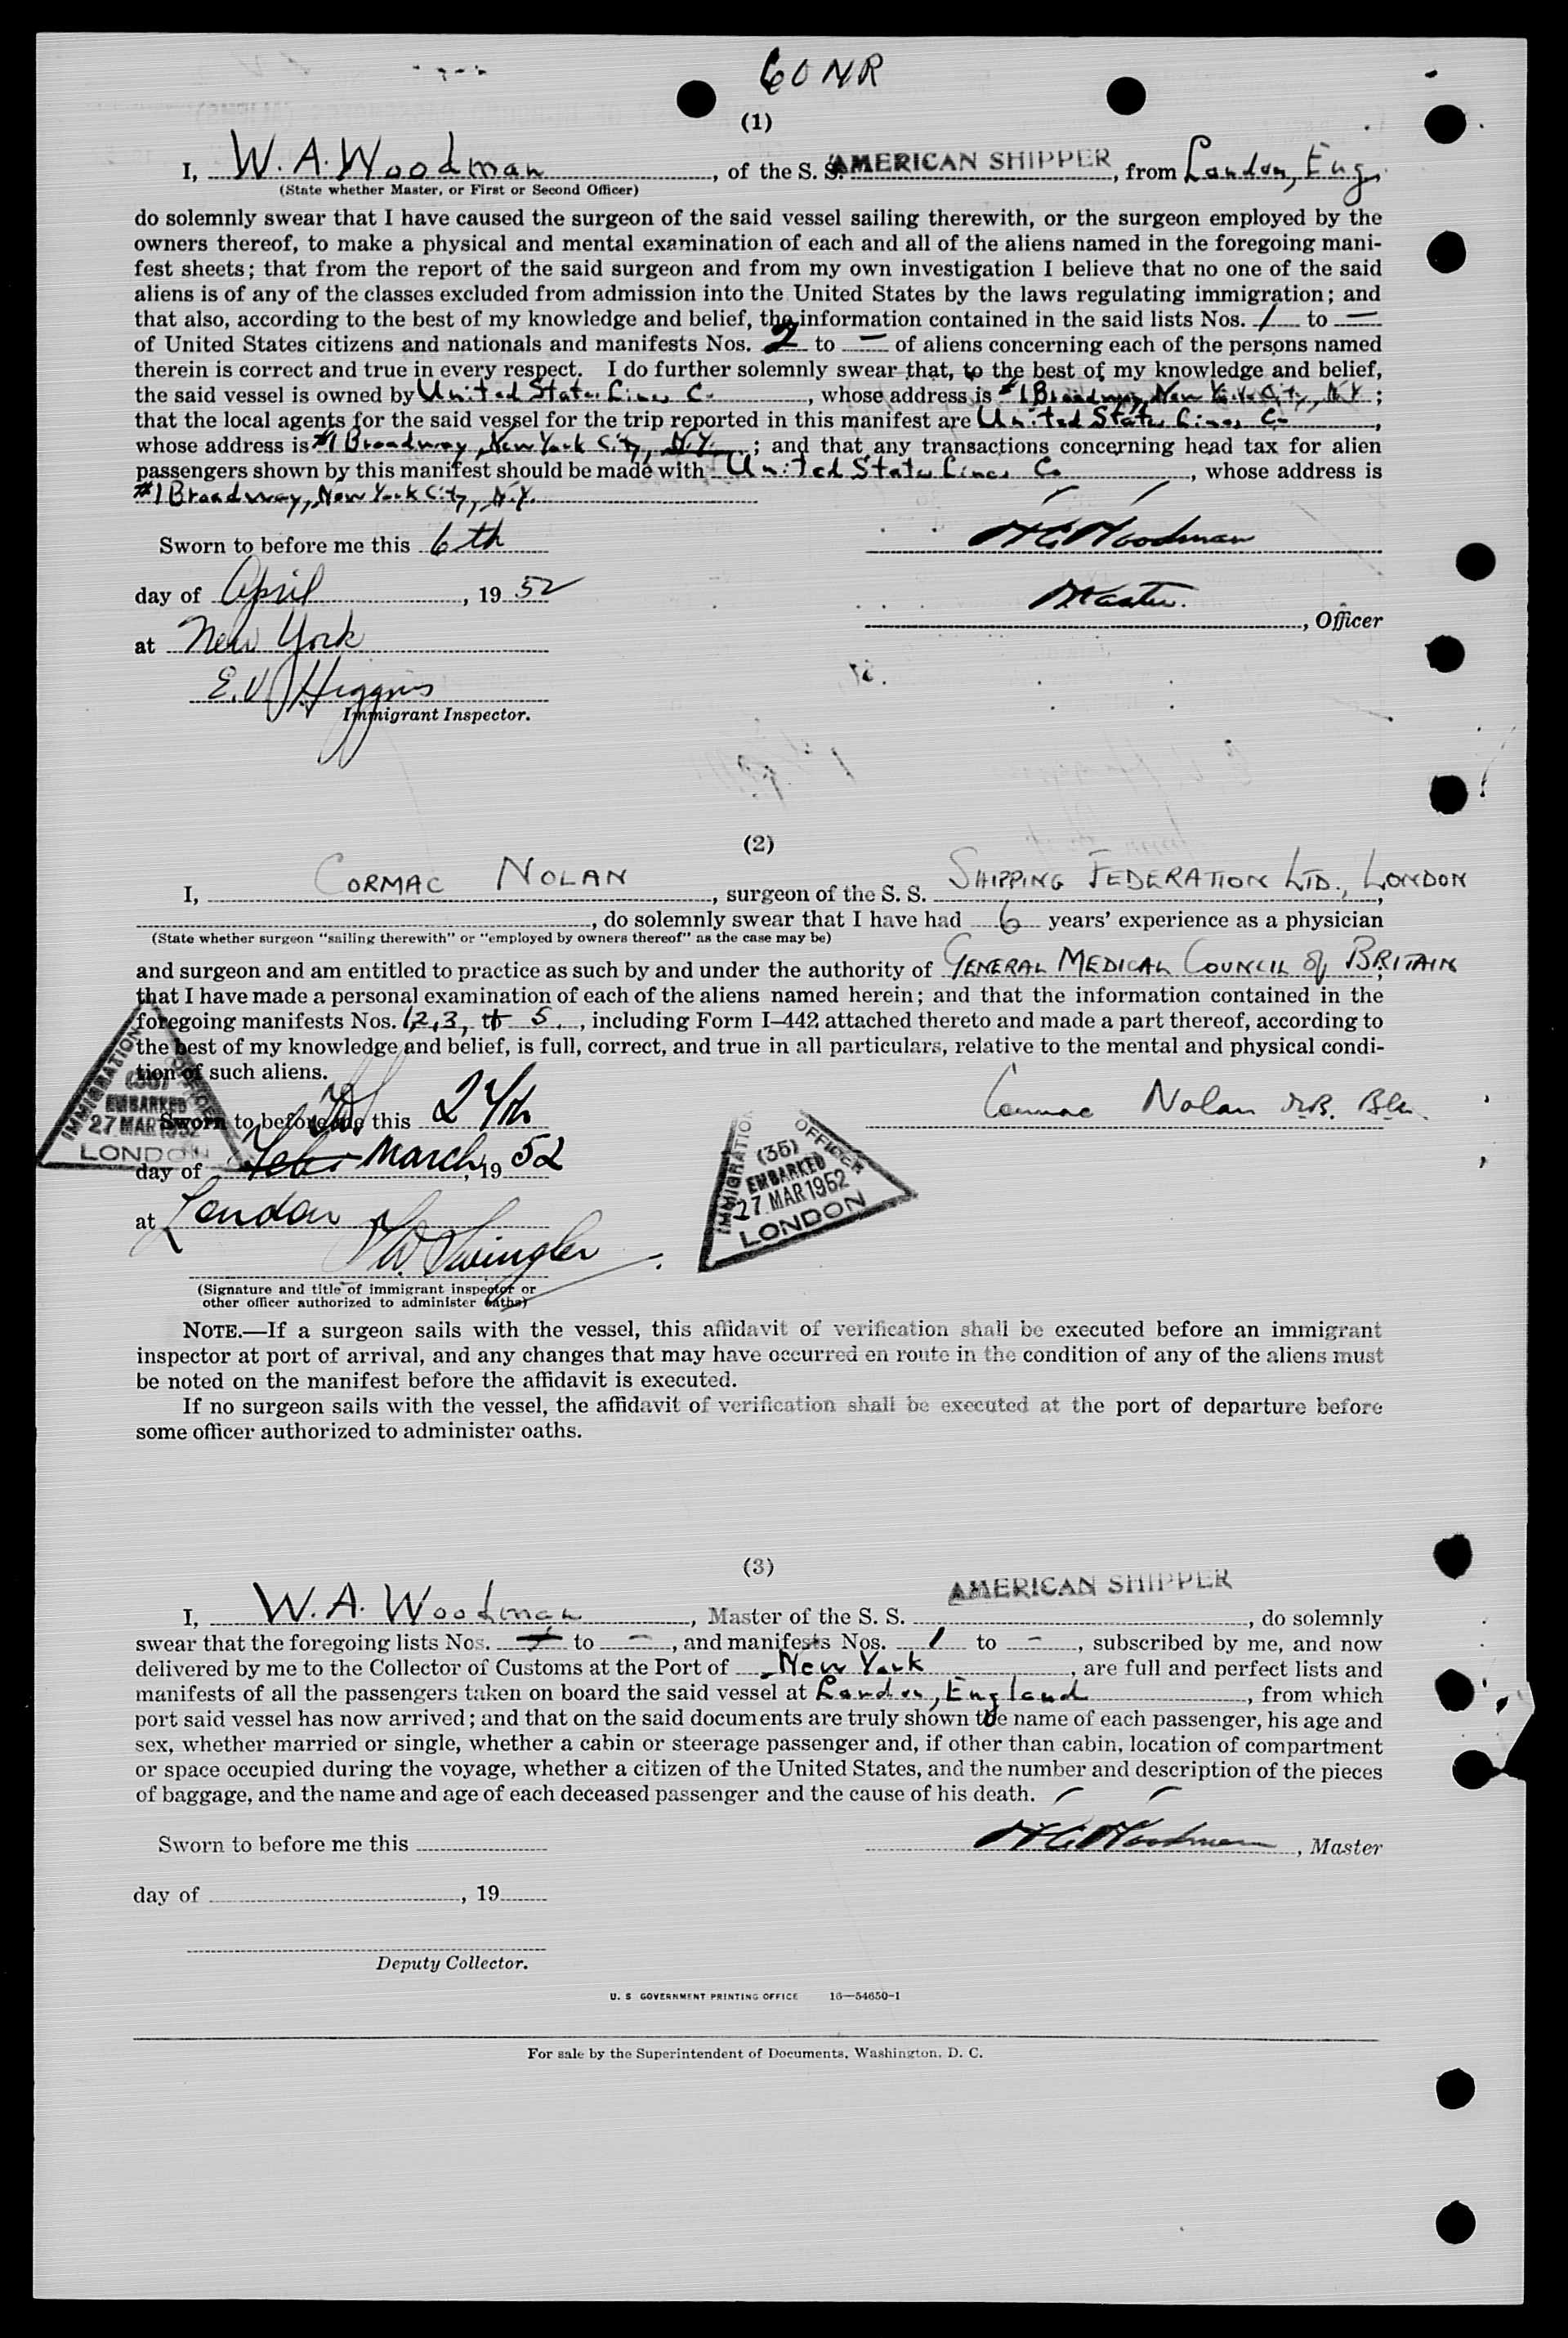 60 NR
(1)
I, W. A. Woodman, of the S. S. AMERICAN SHIPPER, from London, Eng.
(State whether Master, or First or Second Officer)
do solemnly swear that I have caused the surgeon of the said vessel sailing therewith, or the surgeon employed by the
owners thereof, to make a physical and mental examination of each and all of the aliens named in the foregoing mani-
fest sheets; that from the report of the said surgeon and from my own investigation I believe that no one of the said
aliens is of any of the classes excluded from admission into the United States by the laws regulating immigration; and
that also, according to the best of my knowledge and belief, the information contained in the said lists Nos. 1 to —
of United States citizens and nationals and manifests Nos. 2 to — of aliens concerning each of the persons named
therein is correct and true in every respect. I do further solemnly swear that, to the best of my knowledge and belief,
the said vessel is owned by United States Lines Co., whose address is #1 Broadway, New York City, N.Y.;
that the local agents for the said vessel for the trip reported in this manifest are United States Lines Co,
whose address is #1 Broadway, New York City, N.Y.; and that any transactions concerning head tax for alien
passengers shown by this manifest should be made with United States Lines Co, whose address is
#1 Broadway, New York City, N.Y.
Sworn to before me this 6th
WA Woodman
day of April, 19 52
Master., Officer
at New York
E. V. Higgins
Immigrant Inspector.
(2)
I, CORMAC NOLAN, surgeon of the S. S. SHIPPING FEDERATION LTD., LONDON,
, do solemnly swear that I have had 6 years' experience as a physician
(State whether surgeon "sailing therewith" or "employed by owners thereof" as the case may be)
and surgeon and am entitled to practice as such by and under the authority of GENERAL MEDICAL COUNCIL of BRITAIN;
that I have made a personal examination of each of the aliens named herein; and that the information contained in the
foregoing manifests Nos. 1,2,3, to 5, including Form I–442 attached thereto and made a part thereof, according to
the best of my knowledge and belief, is full, correct, and true in all particulars, relative to the mental and physical condi-
tion of such aliens.
IMMIGRATION OFFICER
(35)
EMBARKED
27 MAR 1952
LONDON
Sworn to before me this 27th
Cormac Nolan
day of Feb. March, 19 52
IMMIGRATION OFFICER
(35)
EMBARKED
27 MAR 1952
LONDON
at London
W. Swingler
(Signature and title of immigrant inspector or
other officer authorized to administer oaths)
NOTE.—If a surgeon sails with the vessel, this affidavit of verification shall be executed before an immigrant
inspector at port of arrival, and any changes that may have occurred en route in the condition of any of the aliens must
be noted on the manifest before the affidavit is executed.
If no surgeon sails with the vessel, the affidavit of verification shall be executed at the port of departure before
some officer authorized to administer oaths.
(3)
I, W. A. Woodman, Master of the S. S. AMERICAN SHIPPER, do solemnly
swear that the foregoing lists Nos. — to —, and manifests Nos. 1 to —, subscribed by me, and now
delivered by me to the Collector of Customs at the Port of New York, are full and perfect lists and
manifests of all the passengers taken on board the said vessel at London, England, from which
port said vessel has now arrived; and that on the said documents are truly shown the name of each passenger, his age and
sex, whether married or single, whether a cabin or steerage passenger and, if other than cabin, location of compartment
or space occupied during the voyage, whether a citizen of the United States, and the number and description of the pieces
of baggage, and the name and age of each deceased passenger and the cause of his death.
Sworn to before me this
WA Woodman, Master
day of , 19
Deputy Collector.
U. S GOVERNMENT PRINTING OFFICE 16—54650-1
For sale by the Superintendent of Documents, Washington, D. C.